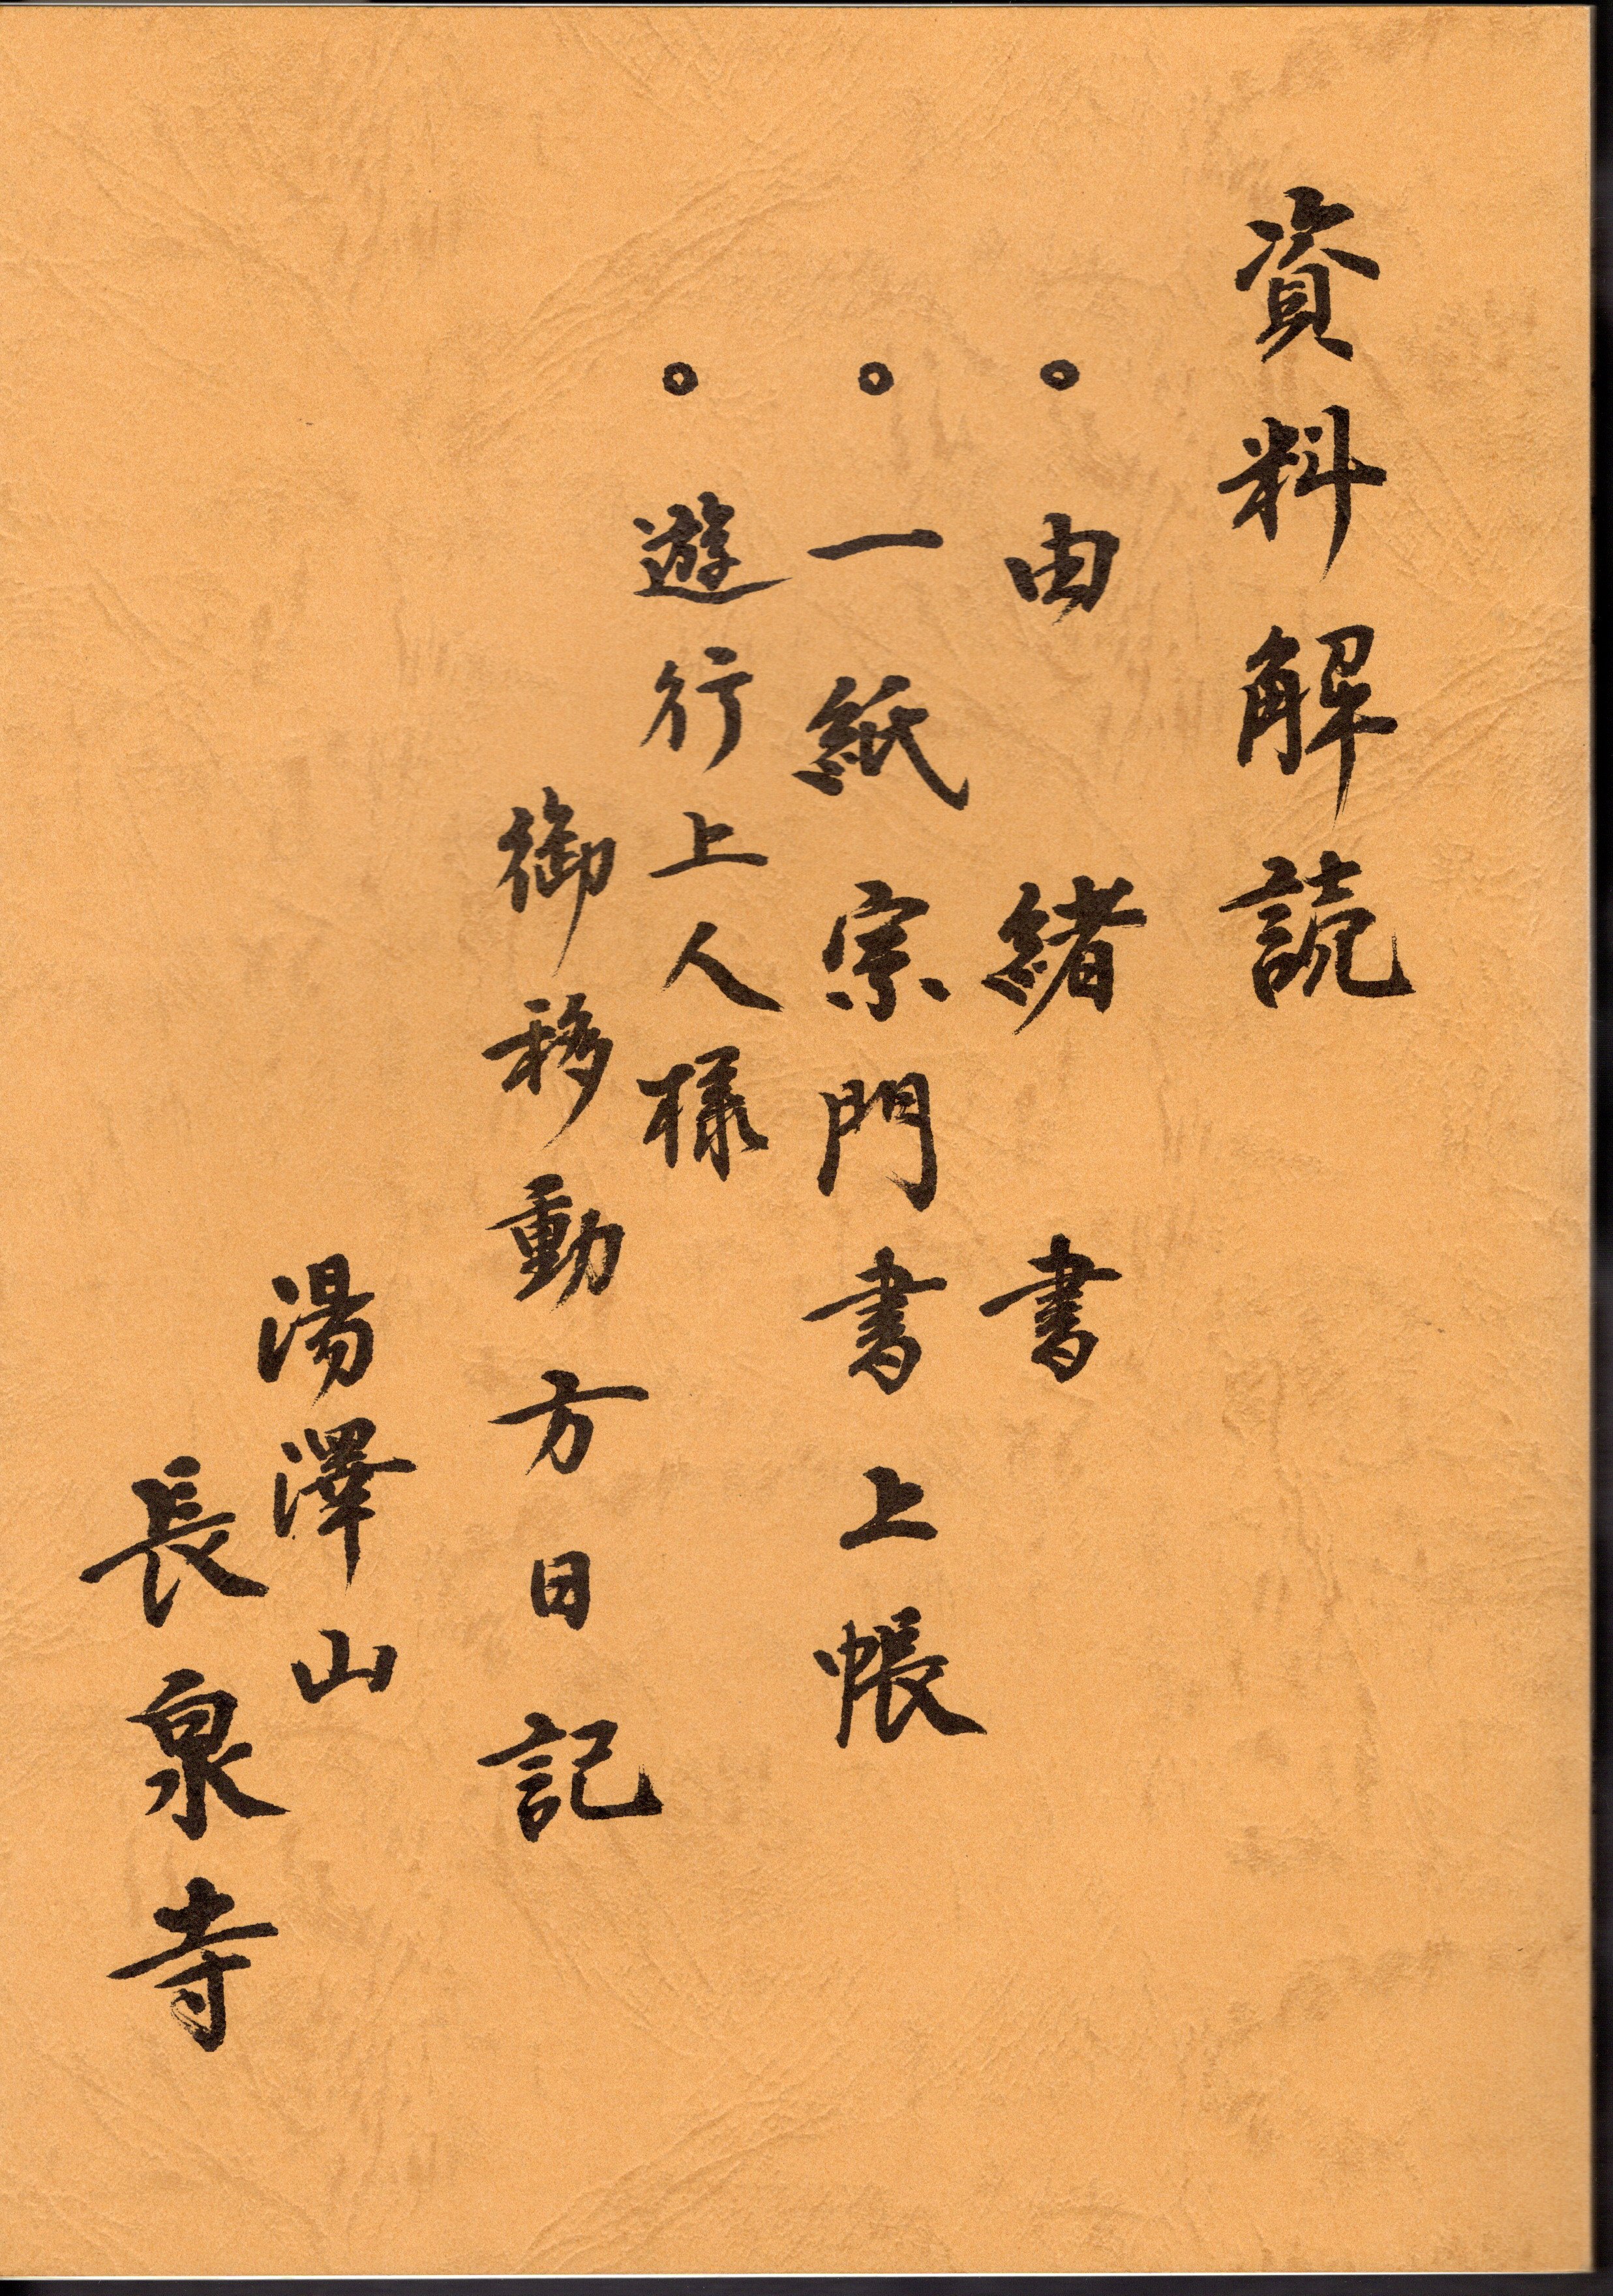 資料解読
。由緒書
。一紙宗門書上帳
。遊行上人様
御移動方日記
湯澤山
長泉寺